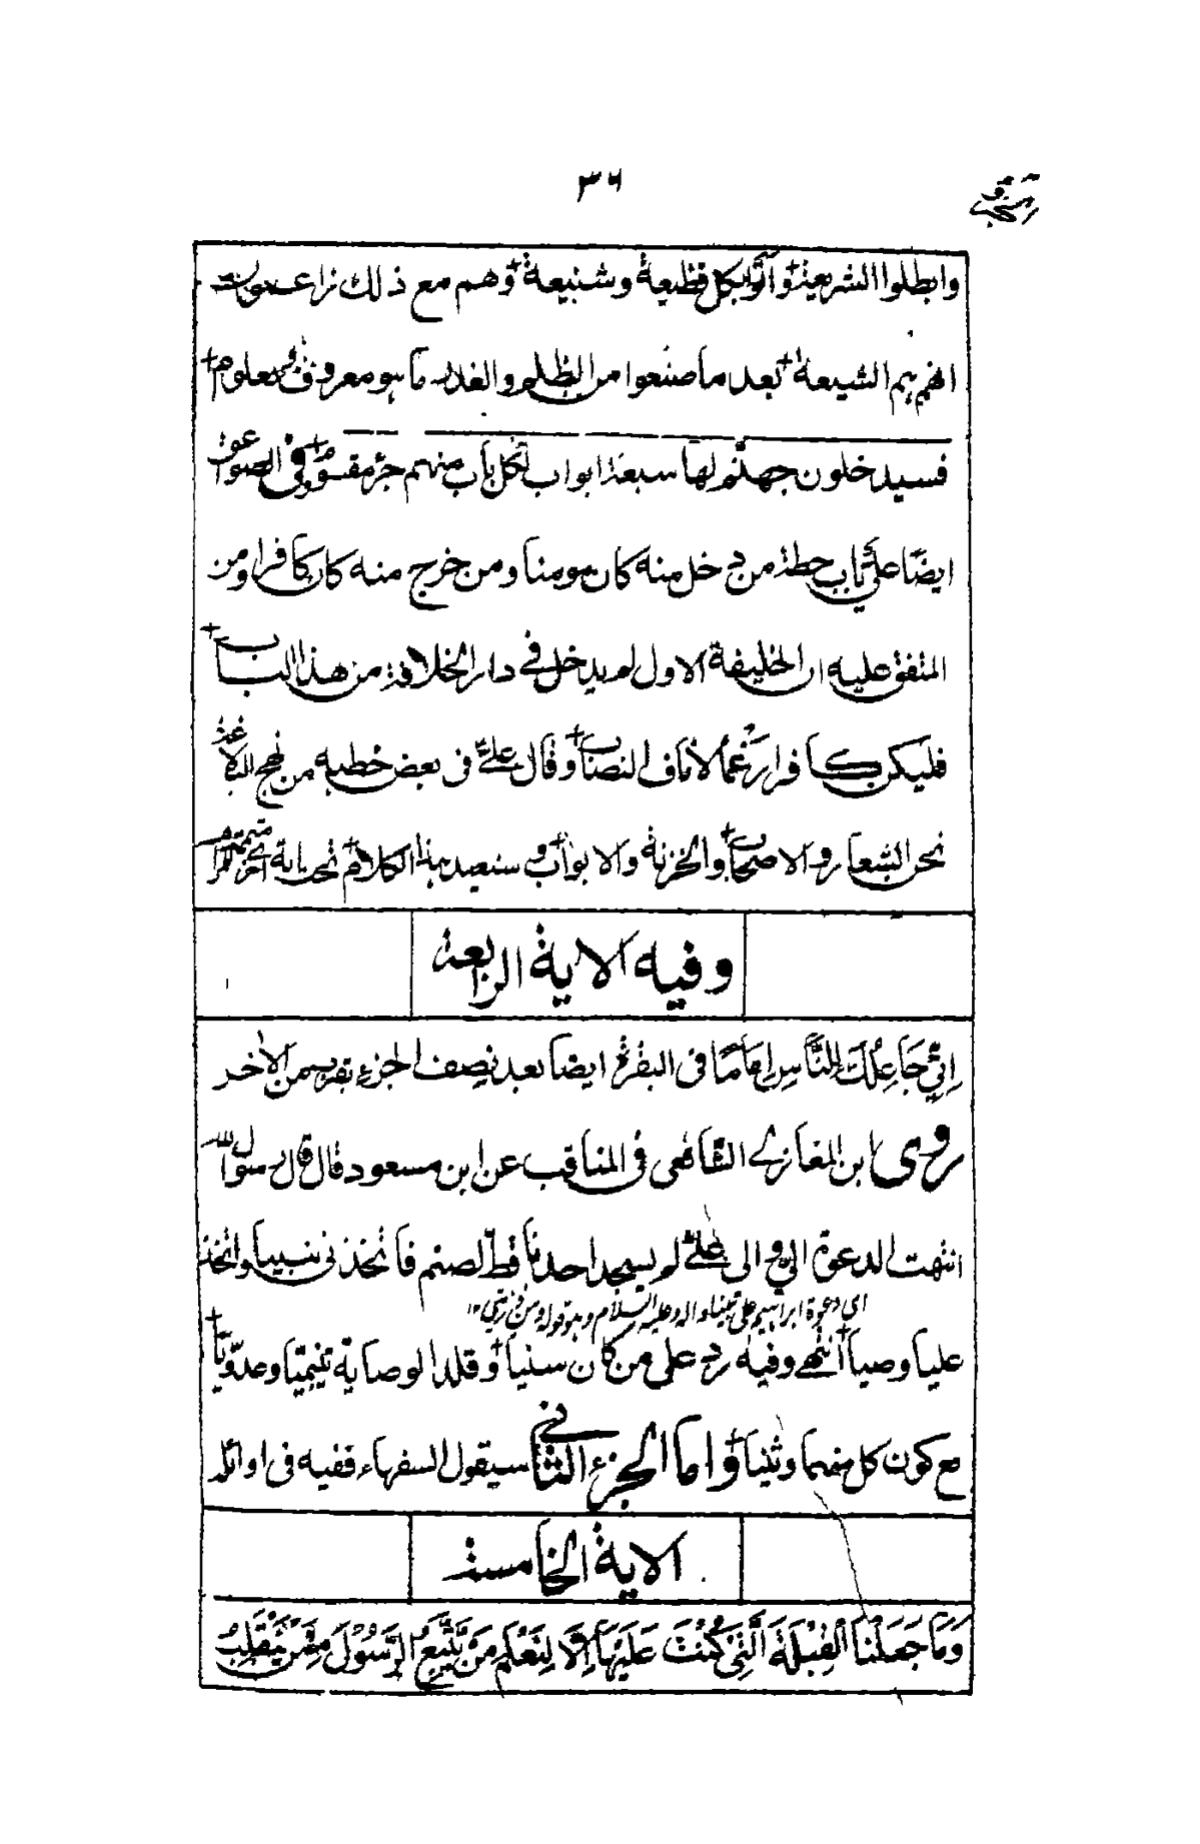 ٣٦
وابطلوا الشريعة واتوا بكل فظيعة وشنيعة وهم مع ذلك زاعمون
انهم هم الشيعة بعد ما صنعوا من الظلم والغدر ما هو معروف ومعلوم
فسيدخلون جهنم لها سبعة ابواب لكل باب منهم جزء مقسوم وفي الصواعق
ايضا علي باب حطة من دخل منه كان مومنا ومن خرج منه كان كافرا ومن
المتفق عليه ان الخليفة الاول لم يدخل في دار الخلافة من هذا الباب
فليكن كافرا رغما لأناف النصاب وقال علي في بعض خطبه من نهج البلاغة
نحن الشعار والاصحاب والخزنة والابواب وسنعيد هذا الكلام تحت اية اخرى
وفيه الاية الرابعة
اِنِّي جَاعِلُكَ لِلنَّاسِ اِمَامًا في البقرة ايضا بعد نصف الجزء بقريب من الاخر
روى ابن المغازلي الشافعي في المناقب عن ابن مسعود قال قال رسول الله
انتهت الدعوة الي والى علي لم يسجد احدنا قط لصنم فاتخذني نبيا واتخذ
اي دعوة ابراهيم على نبينا واله وعليه السلام وهو قوله ومن ذريتي ١٢
عليا وصيا انتهى وفيه رد على من كان سنيا وقلد الوصاية تيميا وعدويا
مع كون كل منهما وثنيا واما الجزء الثاني سيقول السفهاء ففيه في اوائله
الاية الخامسة
وَمَا جَعَلْنَا الْقِبْلَةَ الَّتِي كُنْتَ عَلَيْهَا اِلَّا لِنَعْلَمَ مَنْ يَتَّبِعُ الرَّسُوْلَ مِمَّنْ يَنْقَلِبُ